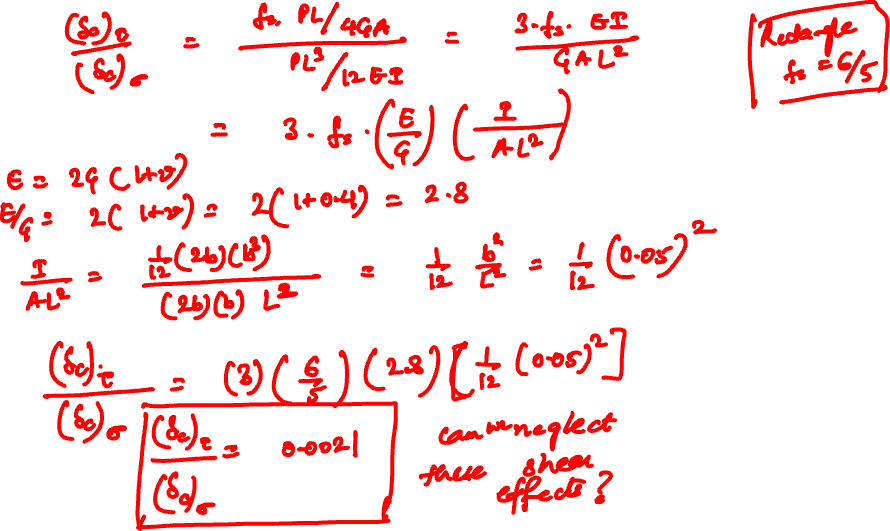 (δc)τ / (δc)σ = (fs PL/4GA) / (PL³/12EI) = 3·fs·EI / GAL²
Rectangle
fs = 6/5
= 3·fs·(E/G)(I/AL²)
E = 2G(1+ν)
E/G = 2(1+ν) = 2(1+0.4) = 2.8
I/AL² = (1/12 (2b)(b³)) / ((2b)(b) L²) = 1/12 b²/L² = 1/12 (0.05)²
(δc)τ / (δc)σ = (3)(6/5)(2.8)[1/12 (0.05)²]
(δc)τ / (δc)σ = 0.0021
can we neglect
these shear
effects?